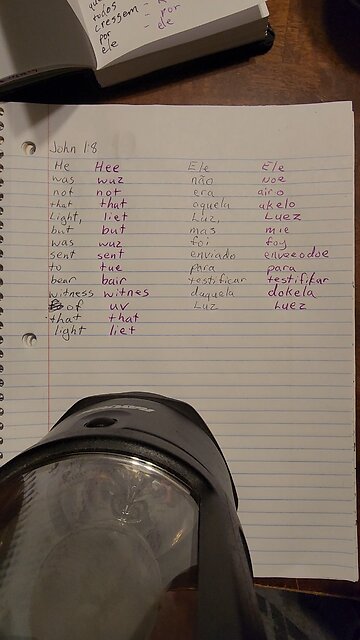 todos
cressem - por
por - ele
ele
John 1:8
He Hee Ele Ele
was wuz não noe
not not era airo
that that aquela akelo
Light, liet Luz, Luez
but but mas mie
was wuz foi foy
sent sent enviado enveeodoe
to tue para para
bear bair testificar testifikar
witness witnes daquela dokela
of uv Luz Luez
that that
light liet